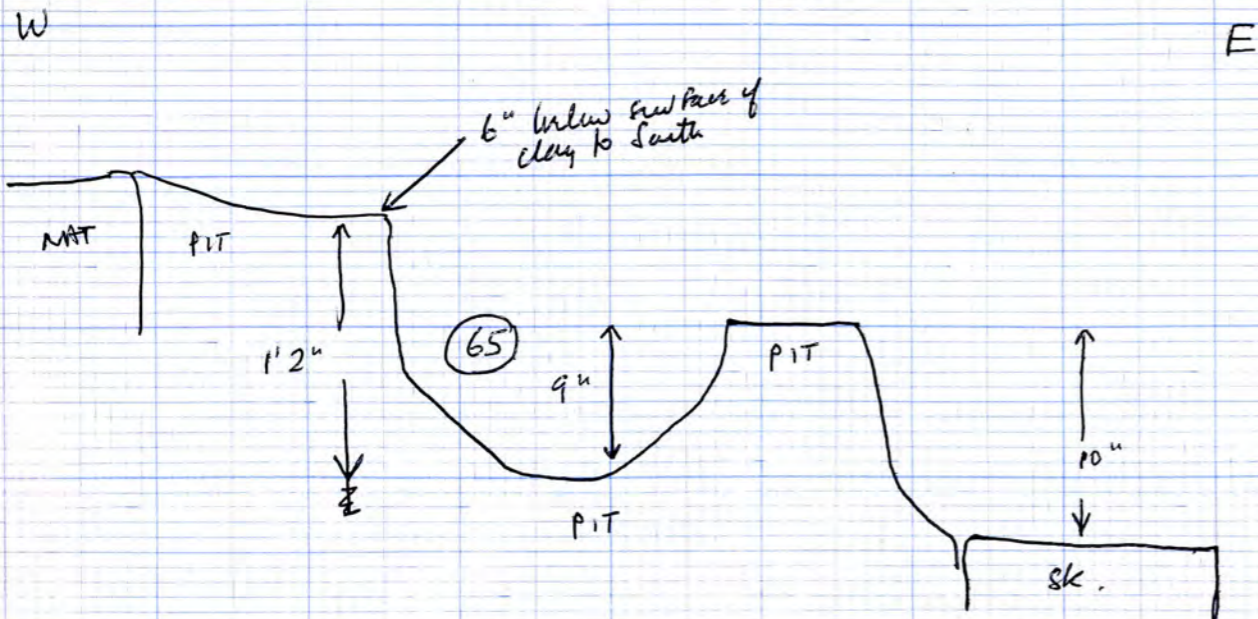 W
E
6" below surface of
clay to South
NAT
PIT
1' 2"
65
9"
PIT
10"
PIT
SK.